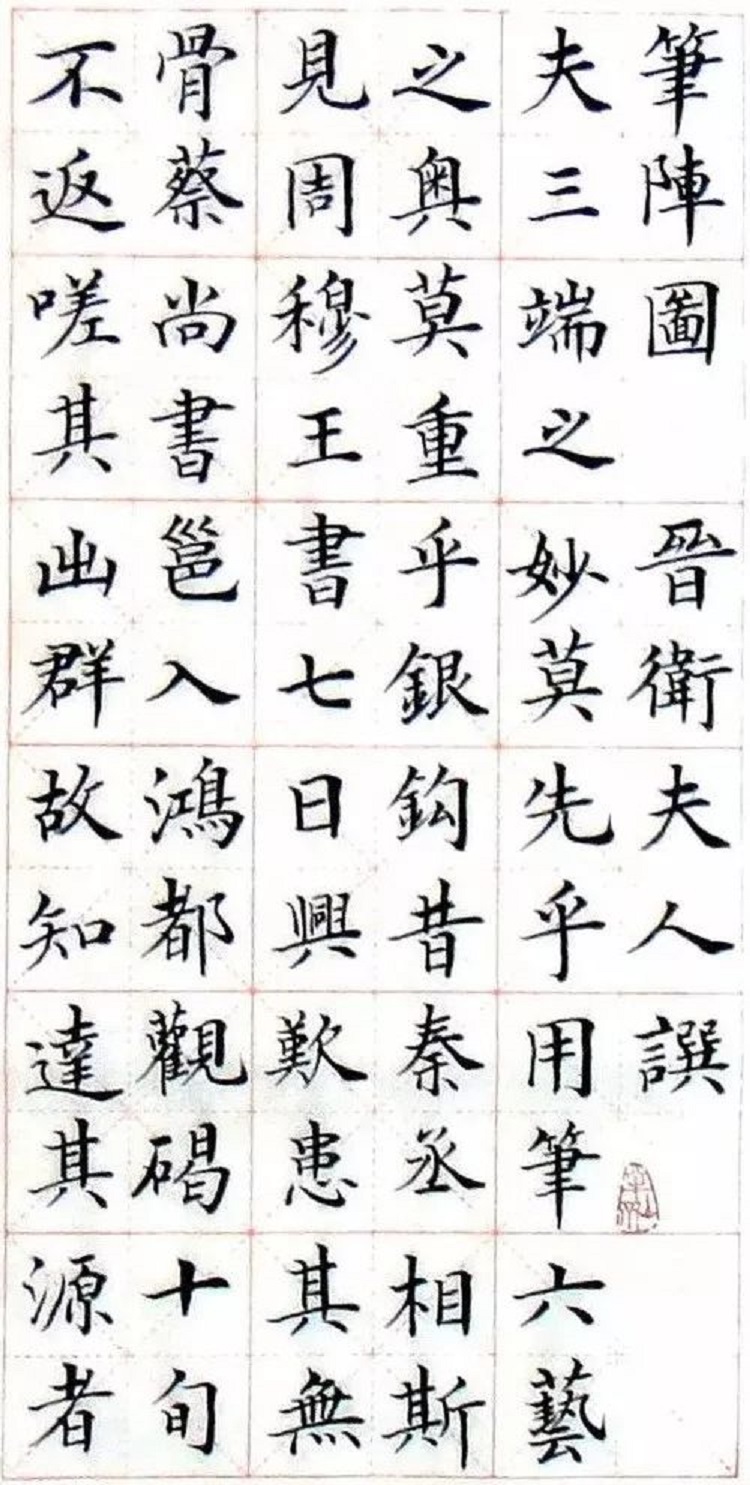 筆陣圖 晉衛夫人譔
夫三端之妙莫先乎用筆六藝
之奥莫重乎銀鈎昔秦丞相斯
見周穆王書七日興歎患其無
骨蔡尚書邕入鴻都觀碣十旬
不返嗟其出群故知達其源者